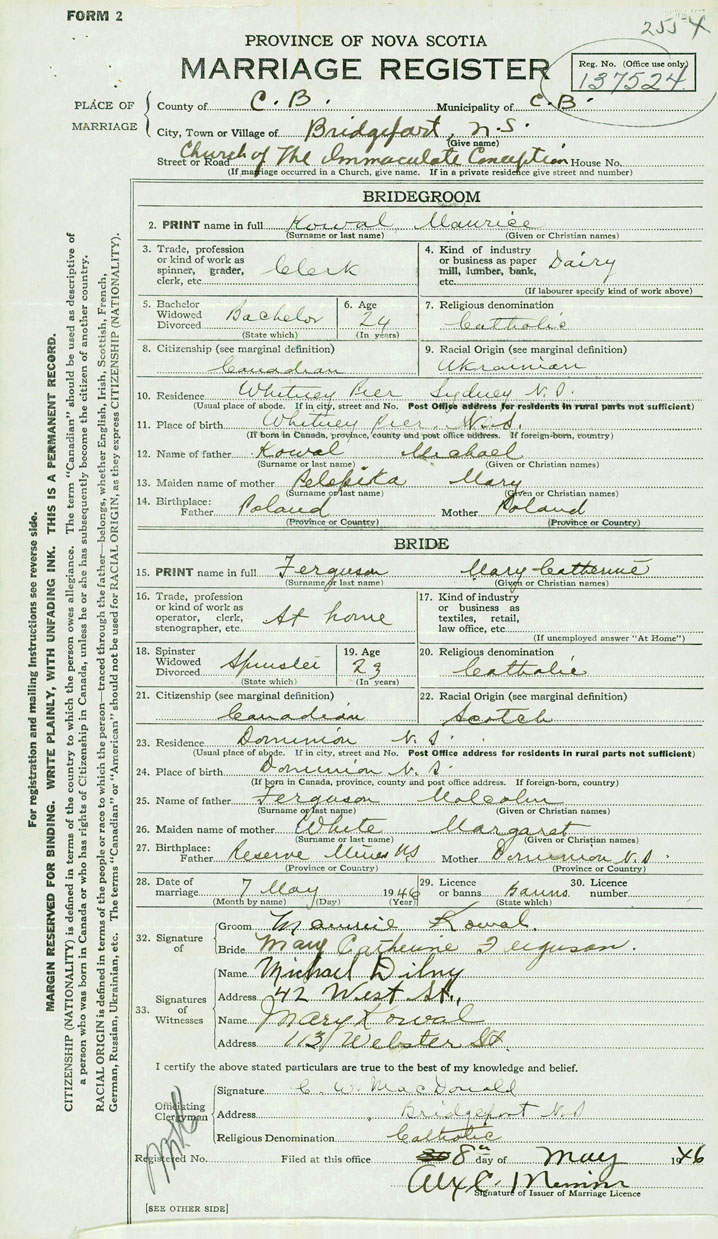 FORM 2
255 4
PROVINCE OF NOVA SCOTIA
MARRIAGE REGISTER
Reg. No. (Office use only)
137524
PLACE OF MARRIAGE
County of C. B. Municipality of C. B.
City, Town or Village of Bridgeport, N.S.
(Give name)
Street or Road Church of The Immaculate Conception House No.
(If marriage occurred in a Church, give name. If in a private residence give street and number)
BRIDEGROOM
2. PRINT name in full Kowal Maurice
(Surname or last name) (Given or Christian names)
3. Trade, profession or kind of work as spinner, grader, clerk, etc. Clerk
4. Kind of industry or business as paper mill, lumber, bank, etc. Dairy
(If labourer specify kind of work above)
5. Bachelor Widowed Divorced Bachelor
(State which)
6. Age 24
(In years)
7. Religious denomination
Catholic
8. Citizenship (see marginal definition)
Canadian
9. Racial Origin (see marginal definition)
Ukrainian
10. Residence Whitney Pier Sydney N.S.
(Usual place of abode. If in city, street and No. Post Office address for residents in rural parts not sufficient)
11. Place of birth Whitney Pier N.S.
(If born in Canada, province, county and post office address. If foreign-born, country)
12. Name of father Kowal Michael
(Surname or last name) (Given or Christian names)
13. Maiden name of mother Mary
(Surname or last name) (Given or Christian names)
14. Birthplace: Father Poland Mother Poland
(Province or Country) (Province or Country)
BRIDE
15. PRINT name in full Ferguson Mary Catherine
(Surname or last name) (Given or Christian names)
16. Trade, profession or kind of work as operator, clerk, stenographer, etc. At home
17. Kind of industry or business as textiles, retail, law office, etc.
(If unemployed answer "At Home")
18. Spinster Widowed Divorced Spinster
(State which)
19. Age 23
(In years)
20. Religious denomination
Catholic
21. Citizenship (see marginal definition)
Canadian
22. Racial Origin (see marginal definition)
Scotch
23. Residence Dominion N.S.
(Usual place of abode. If in city, street and No. Post Office address for residents in rural parts not sufficient)
24. Place of birth Dominion N.S.
(If born in Canada, province, county and post office address. If foreign-born, country)
25. Name of father Ferguson Malcolm
(Surname or last name) (Given or Christian names)
26. Maiden name of mother White Margaret
(Surname or last name) (Given or Christian names)
27. Birthplace: Father Reserve Mines NS Mother Dominion N.S.
(Province or Country) (Province or Country)
28. Date of marriage 7 May 1946
(Month by name) (Day) (Year)
29. Licence or banns Banns
(State which)
30. Licence number
32. Signature of
Groom Kowal.
Bride Mary Catherine Ferguson.
33. Signatures of Witnesses
Name Michael Dilny
Address 42 West St.,
Name Mary Kowal
Address 113 Webster St.
I certify the above stated particulars are true to the best of my knowledge and belief.
Officiating Clergyman
Signature C. W. MacDonald
Address Bridgeport N.S
Religious Denomination Catholic
Registered No. Filed at this office 8th day of May 1946
Signature of Issuer of Marriage Licence
[SEE OTHER SIDE]
For registration and mailing instructions see reverse side.
MARGIN RESERVED FOR BINDING. WRITE PLAINLY, WITH UNFADING INK. THIS IS A PERMANENT RECORD.
CITIZENSHIP (NATIONALITY) is defined in terms of the country to which the person owes allegiance. The term "Canadian" should be used as descriptive of
a person who was born in Canada or who has rights of Citizenship in Canada, unless he or she has subsequently become the citizen of another country.
RACIAL ORIGIN is defined in terms of the people or race to which the person—traced through the father—belongs, whether English, Irish, Scottish, French,
German, Russian, Ukrainian, etc. The terms "Canadian" or "American" should not be used for RACIAL ORIGIN, as they express CITIZENSHIP (NATIONALITY).